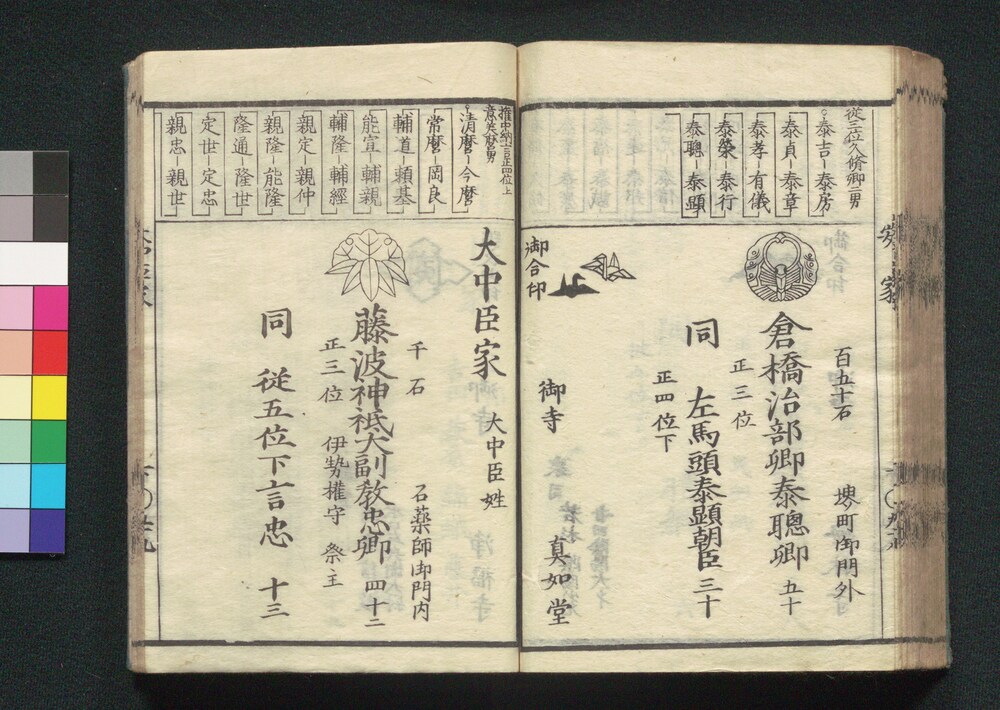 従三位久脩卿二男
泰吉 泰房
泰貞 泰章
泰孝 有儀
泰栄 泰行
泰聰 泰顯
百五十石 堺町御門外
倉橋治部卿泰聰卿 五十
正三位
同 左馬頭泰顯朝臣 三十
正四位下
御合印
御寺 真如堂
権中納言正四位上
意美麿男
清麿 今麿
常麿 岡良
輔道 頼基
能宣 輔親
輔隆 輔經
親定 親仲
親隆 能隆
隆通 隆世
定世 定忠
親忠 親世
大中臣家 大中臣姓
千石 石薬師御門内
藤波神祇大副教忠卿 四十二
正三位 伊勢權守 祭主
同 従五位下言忠 十三